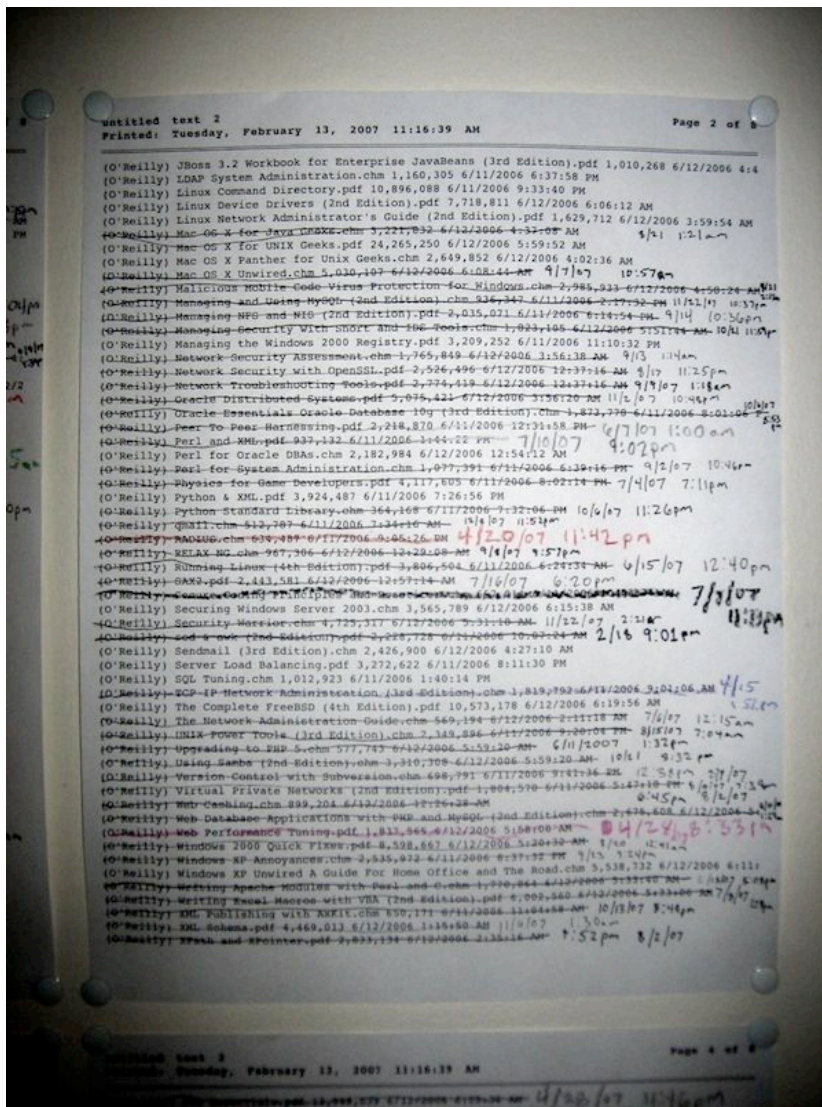 untitled text 2 Page 2 of 8
Printed: Tuesday, February 13, 2007 11:16:39 AM
(O'Reilly) JBoss 3.2 Workbook for Enterprise JavaBeans (3rd Edition).pdf 1,010,268 6/12/2006 4:4
(O'Reilly) LDAP System Administration.chm 1,160,305 6/11/2006 6:37:58 PM
(O'Reilly) Linux Command Directory.pdf 10,896,088 6/11/2006 9:33:40 PM
(O'Reilly) Linux Device Drivers (2nd Edition).pdf 7,718,811 6/11/2006 6:06:12 AM
(O'Reilly) Linux Network Administrator's Guide (2nd Edition).pdf 1,629,712 6/12/2006 3:59:54 AM
(O'Reilly) Mac OS X for Java Geeks.chm 3,221,832 6/12/2006 4:37:08 AM 8/21 1:21am
(O'Reilly) Mac OS X for UNIX Geeks.pdf 24,265,250 6/12/2006 5:59:52 AM
(O'Reilly) Mac OS X Panther for Unix Geeks.chm 2,649,852 6/12/2006 4:02:36 AM
(O'Reilly) Mac OS X Unwired.chm 5,030,107 6/12/2006 6:08:44 AM 9/7/07 10:57am
(O'Reilly) Malicious Mobile Code Virus Protection for Windows.chm 2,985,933 6/12/2006 4:50:24 AM
(O'Reilly) Managing and Using MySQL (2nd Edition).chm 936,347 6/11/2006 2:17:32 PM 11/22/07 10:37pm
(O'Reilly) Managing NFS and NIS (2nd Edition).pdf 2,035,071 6/11/2006 6:14:54 PM 9/14 10:36pm
(O'Reilly) Managing Security with Snort and IDS Tools.chm 1,823,105 6/12/2006 5:51:44 AM 10/21
(O'Reilly) Managing the Windows 2000 Registry.pdf 3,209,252 6/11/2006 11:10:32 PM
(O'Reilly) Network Security Assessment.chm 1,765,849 6/12/2006 3:56:38 AM 9/13 1:14am
(O'Reilly) Network Security with OpenSSL.pdf 2,526,496 6/12/2006 12:37:16 AM 8/17 11:25pm
(O'Reilly) Network Troubleshooting Tools.pdf 2,774,419 6/12/2006 12:37:16 AM 9/9/07 1:18am
(O'Reilly) Oracle Distributed Systems.pdf 5,075,421 6/12/2006 3:56:20 AM 11/2/07 10:48pm
(O'Reilly) Oracle Essentials Oracle Database 10g (3rd Edition).chm 1,873,770 6/11/2006 8:01:06
(O'Reilly) Peer To Peer Harnessing.pdf 2,218,870 6/11/2006 12:31:58 PM 6/7/07 1:00am
(O'Reilly) Perl and XML.pdf 937,132 6/11/2006 1:44:22 PM 7/10/07 9:02pm
(O'Reilly) Perl for Oracle DBAs.chm 2,182,984 6/11/2006 12:54:12 AM
(O'Reilly) Perl for System Administration.chm 1,077,391 6/11/2006 6:39:16 PM 9/2/07 10:46pm
(O'Reilly) Physics for Game Developers.pdf 4,117,605 6/11/2006 8:02:14 PM 7/4/07 7:11pm
(O'Reilly) Python & XML.pdf 3,924,487 6/11/2006 7:26:56 PM
(O'Reilly) Python Standard Library.chm 364,168 6/11/2006 7:32:06 PM 10/6/07 11:26pm
(O'Reilly) qmail.chm 512,787 6/11/2006 7:34:16 AM 11:52pm
(O'Reilly) RADIUS.chm 634,487 6/11/2006 9:05:26 PM 4/20/07 11:42 pm
(O'Reilly) RELAX NG.chm 967,306 6/12/2006 12:29:08 AM 9/8/07 9:57pm
(O'Reilly) Running Linux (4th Edition).pdf 3,806,504 6/11/2006 6:24:34 AM 6/15/07 12:40pm
(O'Reilly) SAX2.pdf 2,443,581 6/12/2006 12:57:14 AM 7/16/07 6:20pm
(O'Reilly) Secure Coding Principles and 7/9/07
(O'Reilly) Securing Windows Server 2003.chm 3,565,789 6/12/2006 6:15:38 AM
(O'Reilly) Security Warrior.chm 4,725,317 6/12/2006 5:31:10 AM 11/22/07 2:21am
(O'Reilly) sed & awk (2nd Edition).pdf 2,228,728 6/11/2006 10:07:24 AM 2/18 9:01pm
(O'Reilly) Sendmail (3rd Edition).chm 2,426,900 6/12/2006 4:27:10 AM
(O'Reilly) Server Load Balancing.pdf 3,272,622 6/11/2006 8:11:30 PM
(O'Reilly) SQL Tuning.chm 1,012,923 6/11/2006 1:40:14 PM
(O'Reilly) TCP IP Network Administration (3rd Edition).chm 1,819,792 6/11/2006 9:01:06 AM 4/15
(O'Reilly) The Complete FreeBSD (4th Edition).pdf 10,573,178 6/12/2006 6:19:56 AM
(O'Reilly) The Network Administration Guide.chm 569,194 6/12/2006 2:11:18 AM 7/6/07 12:15am
(O'Reilly) UNIX Power Tools (3rd Edition).chm 2,349,896 6/11/2006 9:20:04 PM 8/15/07 7:04am
(O'Reilly) Upgrading to PHP 5.chm 577,743 6/12/2006 5:59:20 AM 6/11/2007 1:32pm
(O'Reilly) Using Samba (2nd Edition).chm 3,310,308 6/12/2006 5:59:20 AM 10/21 9:32 pm
(O'Reilly) Version Control with Subversion.chm 698,791 6/11/2006 9:41:36 PM 12:38pm
(O'Reilly) Virtual Private Networks (2nd Edition).pdf 1,804,570 6/11/2006 5:47:18 PM
(O'Reilly) Web Caching.chm 899,204 6/12/2006 12:26:28 AM 6:45pm 8/2/07
(O'Reilly) Web Database Applications with PHP and MySQL (2nd Edition).chm 2,676,608 6/12/2006
(O'Reilly) Web Performance Tuning.pdf 1,837,565 6/12/2006 5:58:00 AM 4/28 8:33pm
(O'Reilly) Windows 2000 Quick Fixes.pdf 8,598,667 6/12/2006 5:20:32 AM 12:41am
(O'Reilly) Windows XP Annoyances.chm 2,535,972 6/11/2006 6:37:32 PM 9/23 9:24pm
(O'Reilly) Windows XP Unwired A Guide For Home Office and The Road.chm 5,538,732 6/12/2006 6:11:
(O'Reilly) Writing Apache Modules with Perl and C.chm 1,770,864 6/12/2006 5:33:40 AM
(O'Reilly) Writing Excel Macros with VBA (2nd Edition).pdf 6,002,560 6/12/2006 5:33:06 AM
(O'Reilly) XML Publishing with AxKit.chm 650,171 6/11/2006 11:04:58 AM 10/13/07 8:48pm
(O'Reilly) XML Schema.pdf 4,469,013 6/12/2006 1:15:50 AM 1:30am
(O'Reilly) XPath and XPointer.pdf 2,833,134 6/12/2006 2:35:16 AM 9:52pm 8/2/07
untitled text 2 Page 4 of 8
Printed: Tuesday, February 13, 2007 11:16:39 AM
4/28/07 11:46pm